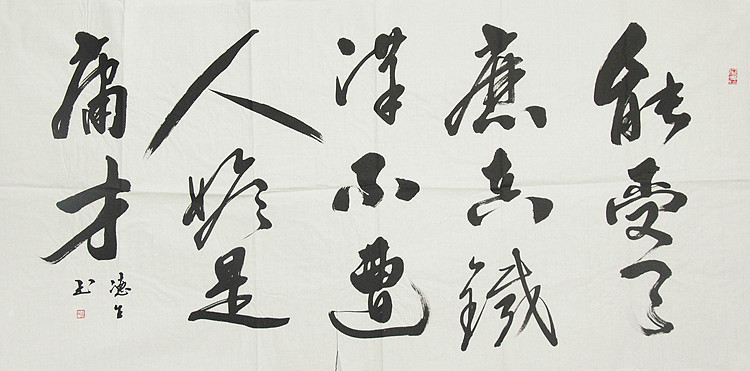 能受天
磨真鐵
漢不遭
人嫉是
庸才
德生
书